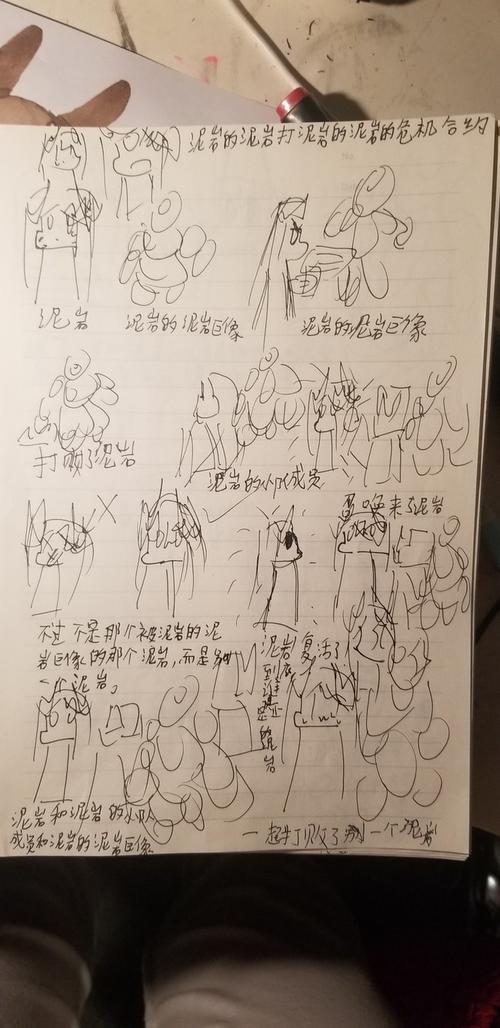 泥岩的泥岩打泥岩的泥岩的危机合约
泥岩
泥岩的泥岩巨像
泥岩的泥岩巨像
打败了泥岩
泥岩的小队成员
召唤来了泥岩
不过不是那个被泥岩的泥
岩巨像的那个泥岩,而是另
一个泥岩。
泥岩复活了!
到底谁
是
泥
岩
泥岩和泥岩的小队
成员和泥岩的泥岩巨像
一起打败了另一个泥岩